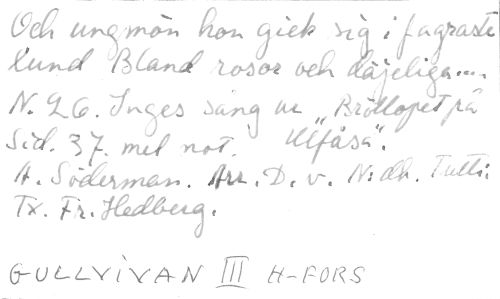 Och ungmön hon gick sig i fagraste
lund Bland rosor och däjeliga....
N. 26. Inges sång ur "Bröllopet på
Sid. 37. mel not. Ulfåsa".
A. Söderman. Arr. D. v. N:dh. Tutti:
Tx. Fr. Hedberg.
GULLVIVAN III H-FORS